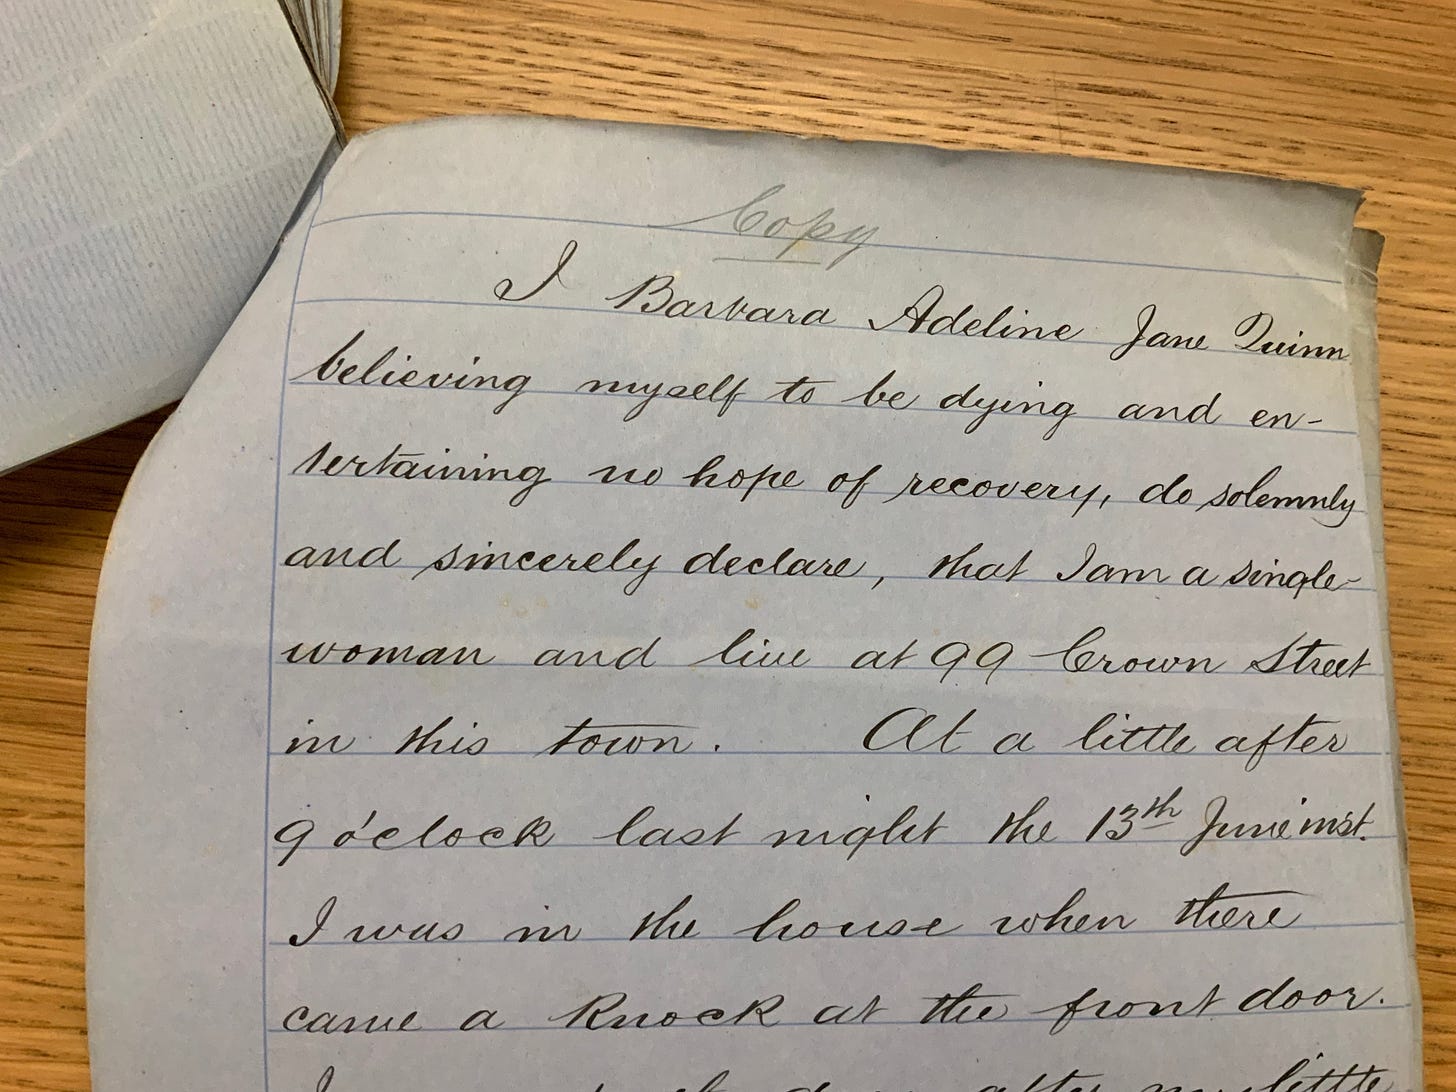 Copy
I Barbara Adeline Jane Quinn
believing myself to be dying and en-
tertaining no hope of recovery, do solemnly
and sincerely declare, that I am a single-
woman and live at 99 Crown Street
in this town. At a little after
9 o'clock last night the 13th June inst.
I was in the house when there
came a knock at the front door.
I after my little